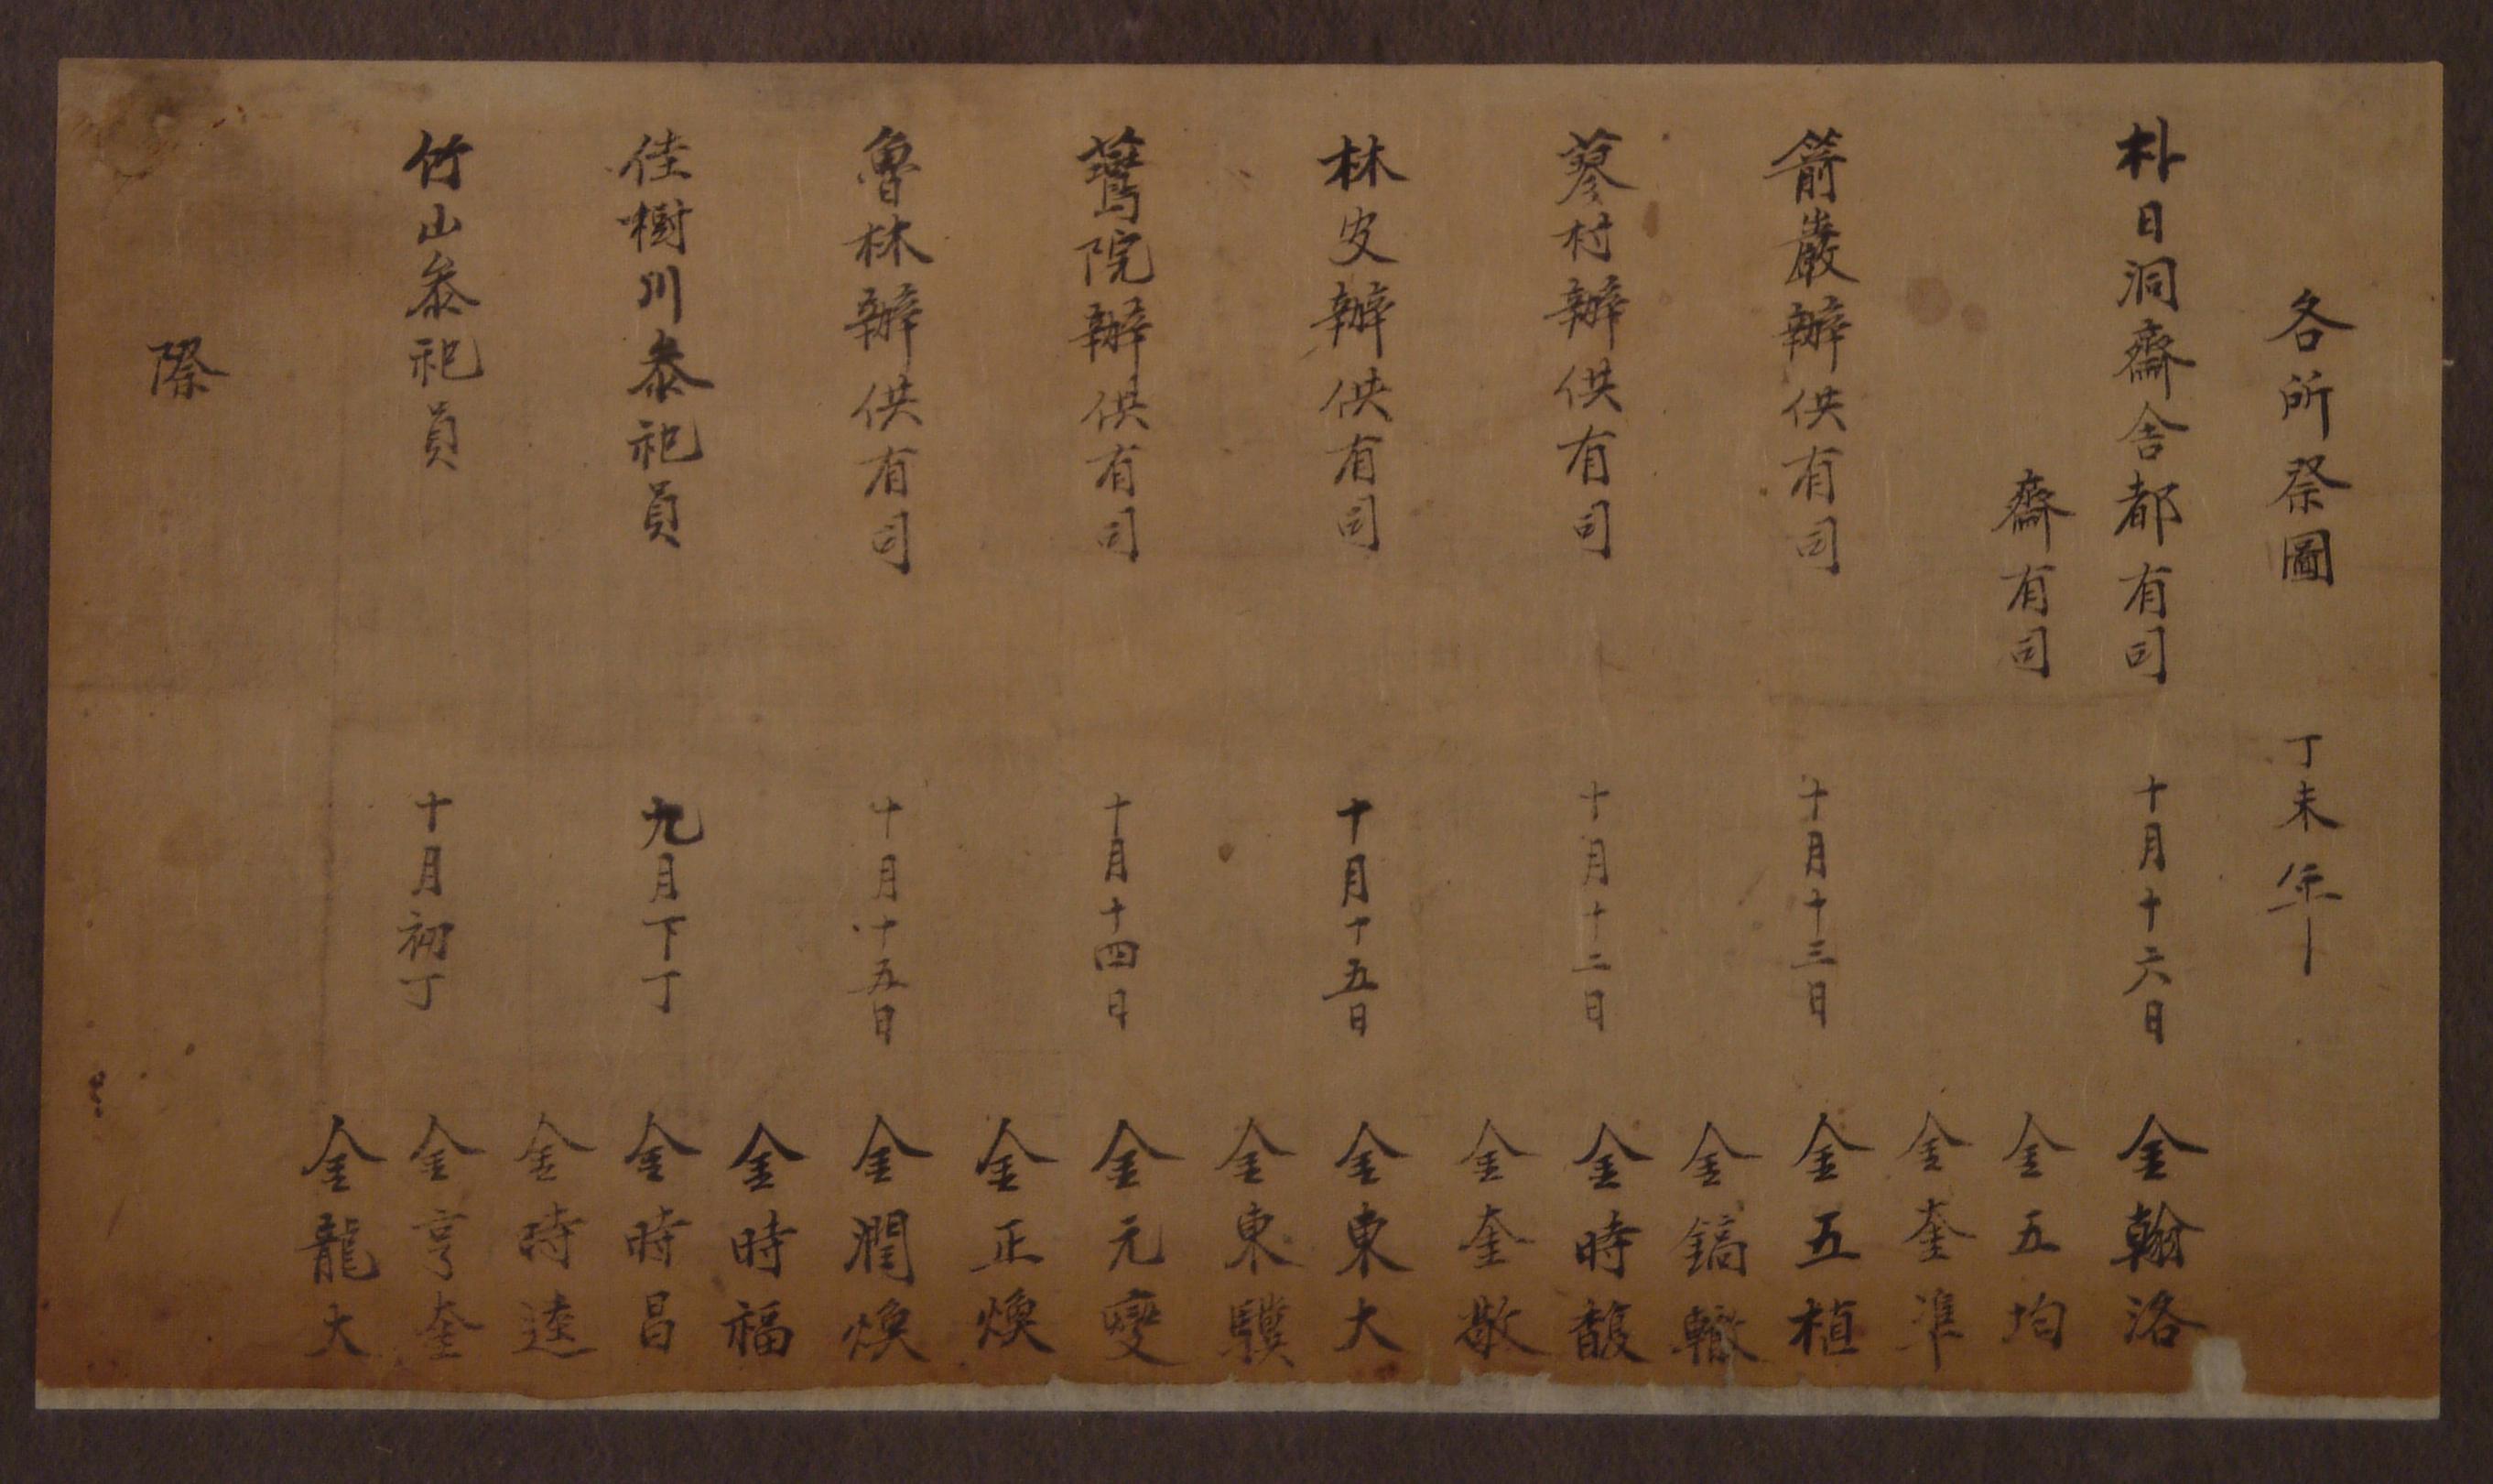 各所祭圖 丁未年
朴日洞齋舍都有司 十月十六日 金翰洛
齋有司 金五均
金奎準
箭巖辦供有司 十月十三日 金五植
金鎬轍
蓼村辦供有司 十月十二日 金時馥
金奎敬
林安辦供有司 十月十五日 金東大
金東驥
鶯院辦供有司 十月十四日 金元燮
金正煥
魯林辦供有司 十月十五日 金潤煥
金時福
佳樹川叅祀員 九月下丁 金時昌
金時逵
竹山叅祀員 十月初丁 金亨奎
金龍大
際